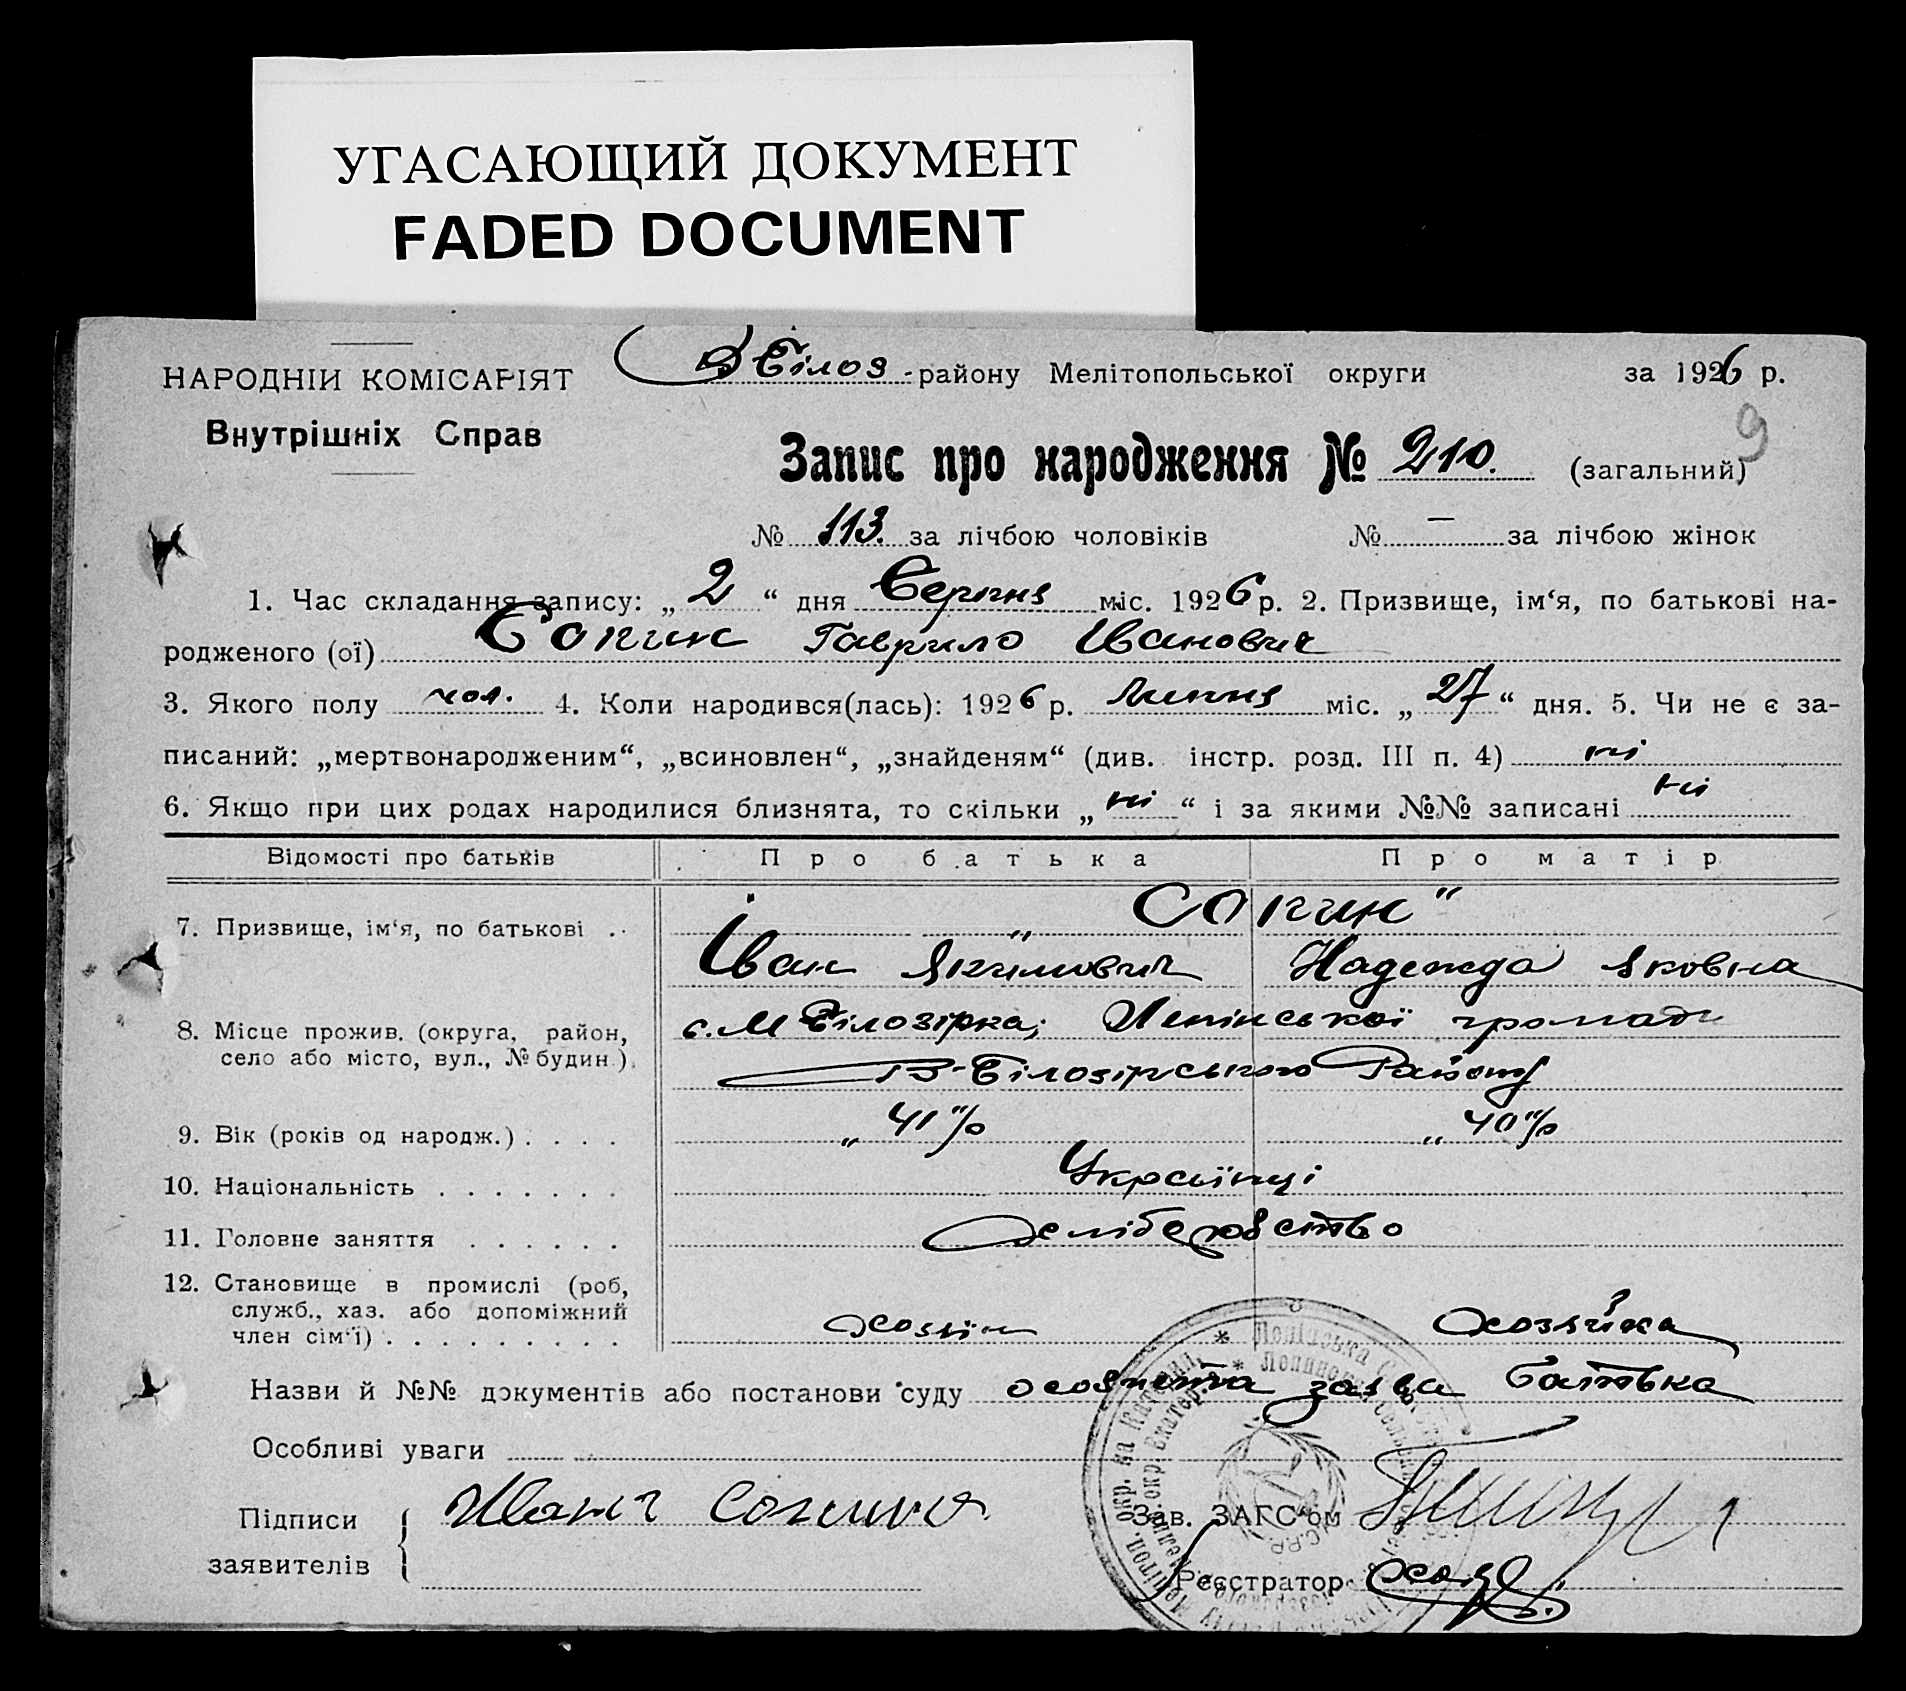 УГАСАЮЩИЙ ДОКУМЕНТ
FADED DOCUMENT
НАРОДНІЙ КОМІСАРІЯТ
Внутрішніх Справ
В Білоз. району Мелітопольської округи за 1926 р.
9
Запис про народження № 210. (загальний)
№ 113. за лічбою чоловіків № — за лічбою жінок
1. Час складання запису: „ 2 “ дня Серпня міс. 1926 р. 2. Призвище, ім‘я, по батькові на-
родженого (ої) Сопин Гаврило Иванович
3. Якого полу чол. 4. Коли народився(лась): 1926 р. Липня міс. „ 27 “ дня. 5. Чи не є за-
писаний: „мертвонародженим“, „всиновлен“, „знайденям“ (див. інстр. розд. III п. 4) ні
6. Якщо при цих родах народилися близнята, то скільки „ ні “ і за якими №№ записані ні
Відомості про батьків Про батька Про матір
7. Призвище, ім‘я, по батькові . . „ Сопин “
Іван Якимович Надежда Яковна
8. Місце прожив. (округа, район,
село або місто, вул., № будин.). с. М Білозірка; громади
В-Білозірського Району
9. Вік (років од народж.) . . . . „ 41 “ „ 40 “
10. Національність . . . . . . . Українці
11. Головне заняття . . . . . . Хліборобство
12. Становище в промислі (роб,
служб., хаз. або допоміжний
член сім‘ї) . . . . . . . . . Хозяін Хозяйка
Назви й №№ документів або постанови суду особиста заява батька
Особливі уваги
Підписи
заявителів
Зав. ЗАГС‘ом
Реєстратор